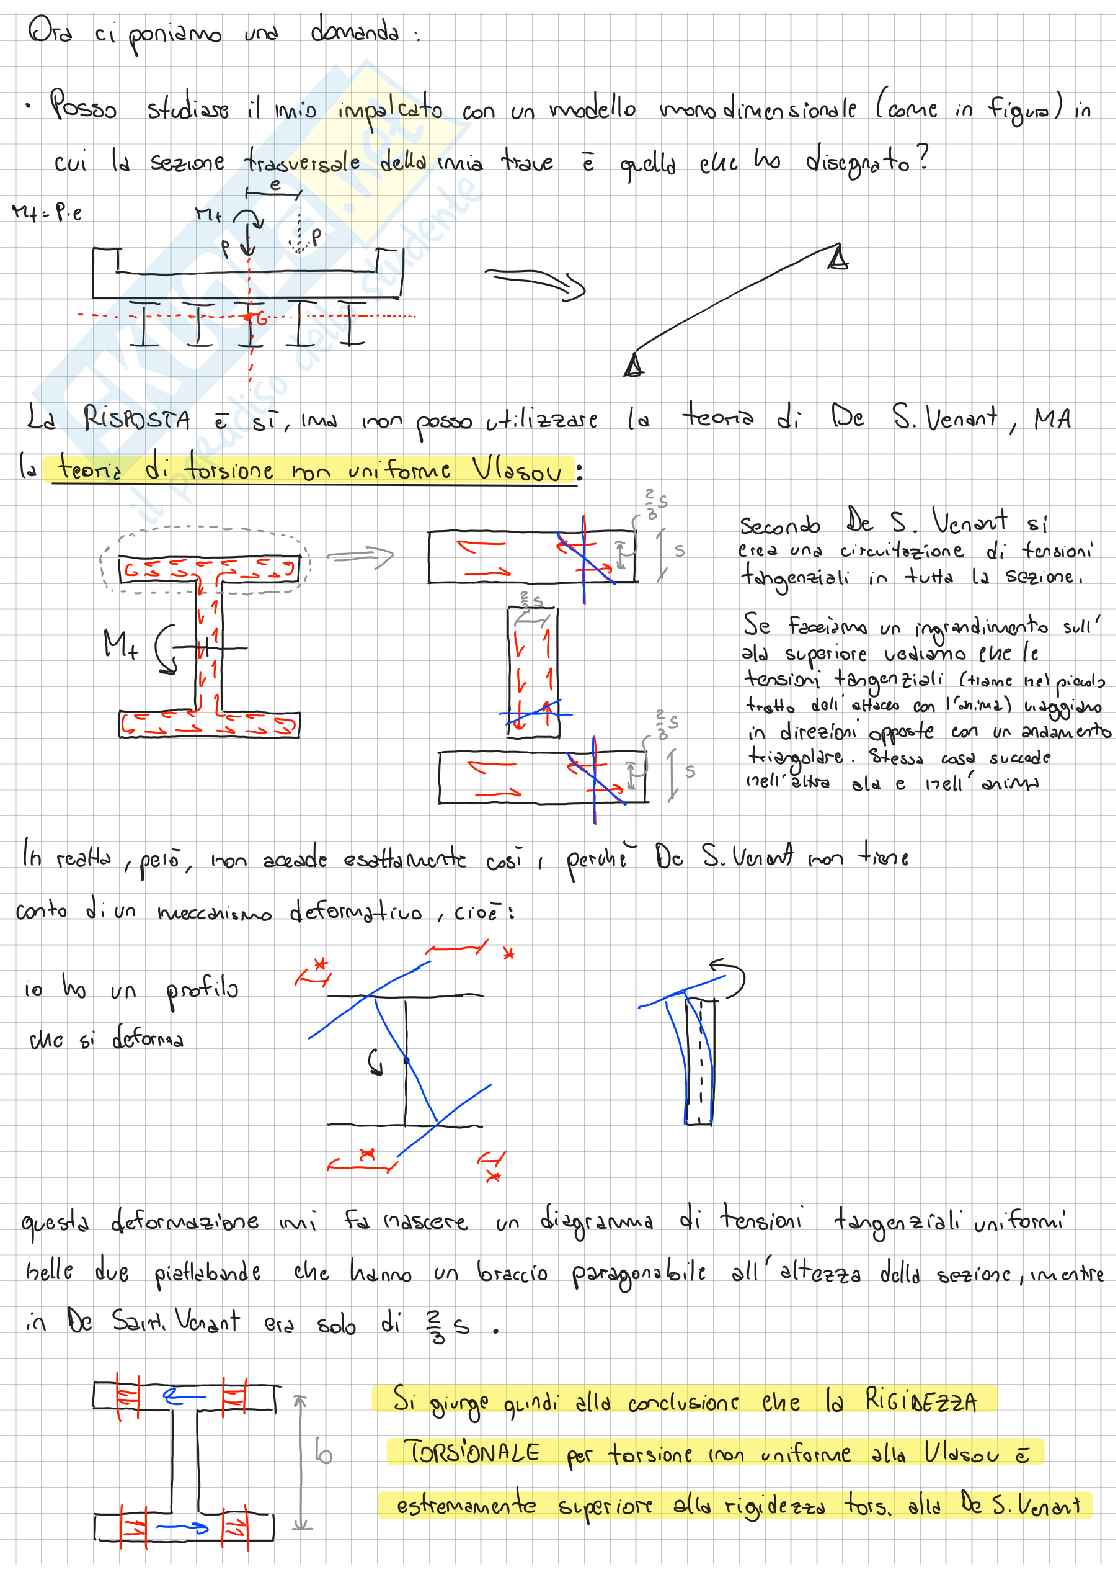 Ora ci poniamo una domanda:
• Posso studiare il mio impalcato con un modello monodimensionale (come in figura) in
cui la sezione trasversale della mia trave è quella che ho disegnato?
e
Mt = P·e
Mt
P
P
G
La RISPOSTA è sì, ma non posso utilizzare la teoria di De S. Venant, MA
la teoria di torsione non uniforme Vlasov:
2/3 s
s
2/3 s
Mt
2/3 s
s
secondo De S. Venant si
crea una circuitazione di tensioni
tangenziali in tutta la sezione.
Se facciamo un ingrandimento sull'
ala superiore vediamo che le
tensioni tangenziali (tranne nel piccolo
tratto dell'attacco con l'anima) viaggiano
in direzioni opposte con un andamento
triangolare. Stessa cosa succede
nell'altra ala e nell'anima
In realtà, però, non accade esattamente così, perché De S. Venant non tiene
conto di un meccanismo deformativo, cioè:
io ho un profilo
che si deforma
questa deformazione mi fa nascere un diagramma di tensioni tangenziali uniformi
nelle due piattabande che hanno un braccio paragonabile all'altezza della sezione, mentre
in De Saint. Venant era solo di 2/3 s.
b
Si giunge quindi alla conclusione che la RIGIDEZZA
TORSIONALE per torsione non uniforme alla Vlasov è
estremamente superiore alla rigidezza tors. alla De S. Venant
SKUOLA.net
il paradiso dello studente